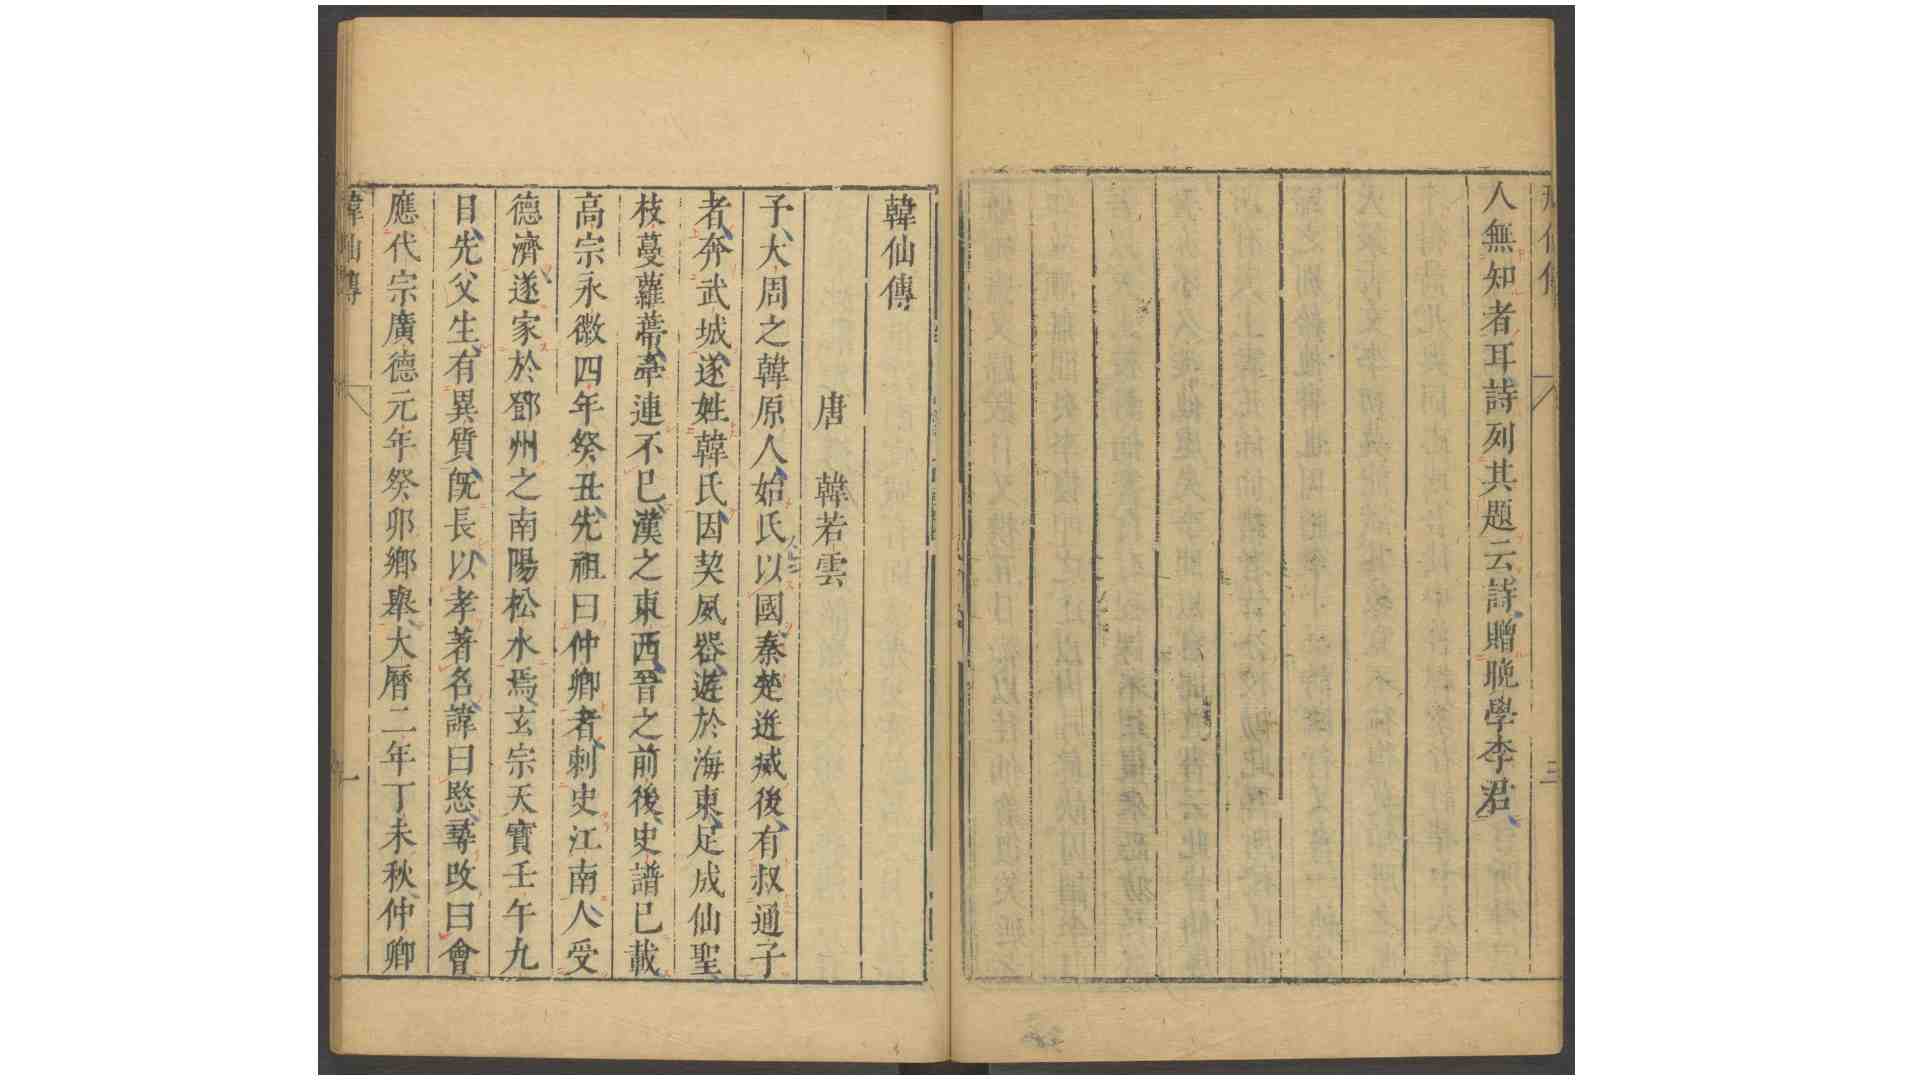 人無知者耳詩列其題云詩贈晚學李君
韓仙傳
唐　韓若雲
予大周之韓原人始氏以國秦楚逬滅後有叔通子
者奔武城遂姓韓氏因契風器遊於海東足成仙聖
枝蔓蘿蔓牽連不已漢之東西晉之前後史譜已載
高宗永徽四年癸丑先祖曰仲卿者刺史江南人受
德濟遂家於鄧州之南陽松水焉玄宗天寶壬午九
日先父生有異質旣長以孝著名諱曰愍尋改曰會
應代宗廣德元年癸卯鄉舉大曆二年丁未秋仲卿
韓仙傳
一